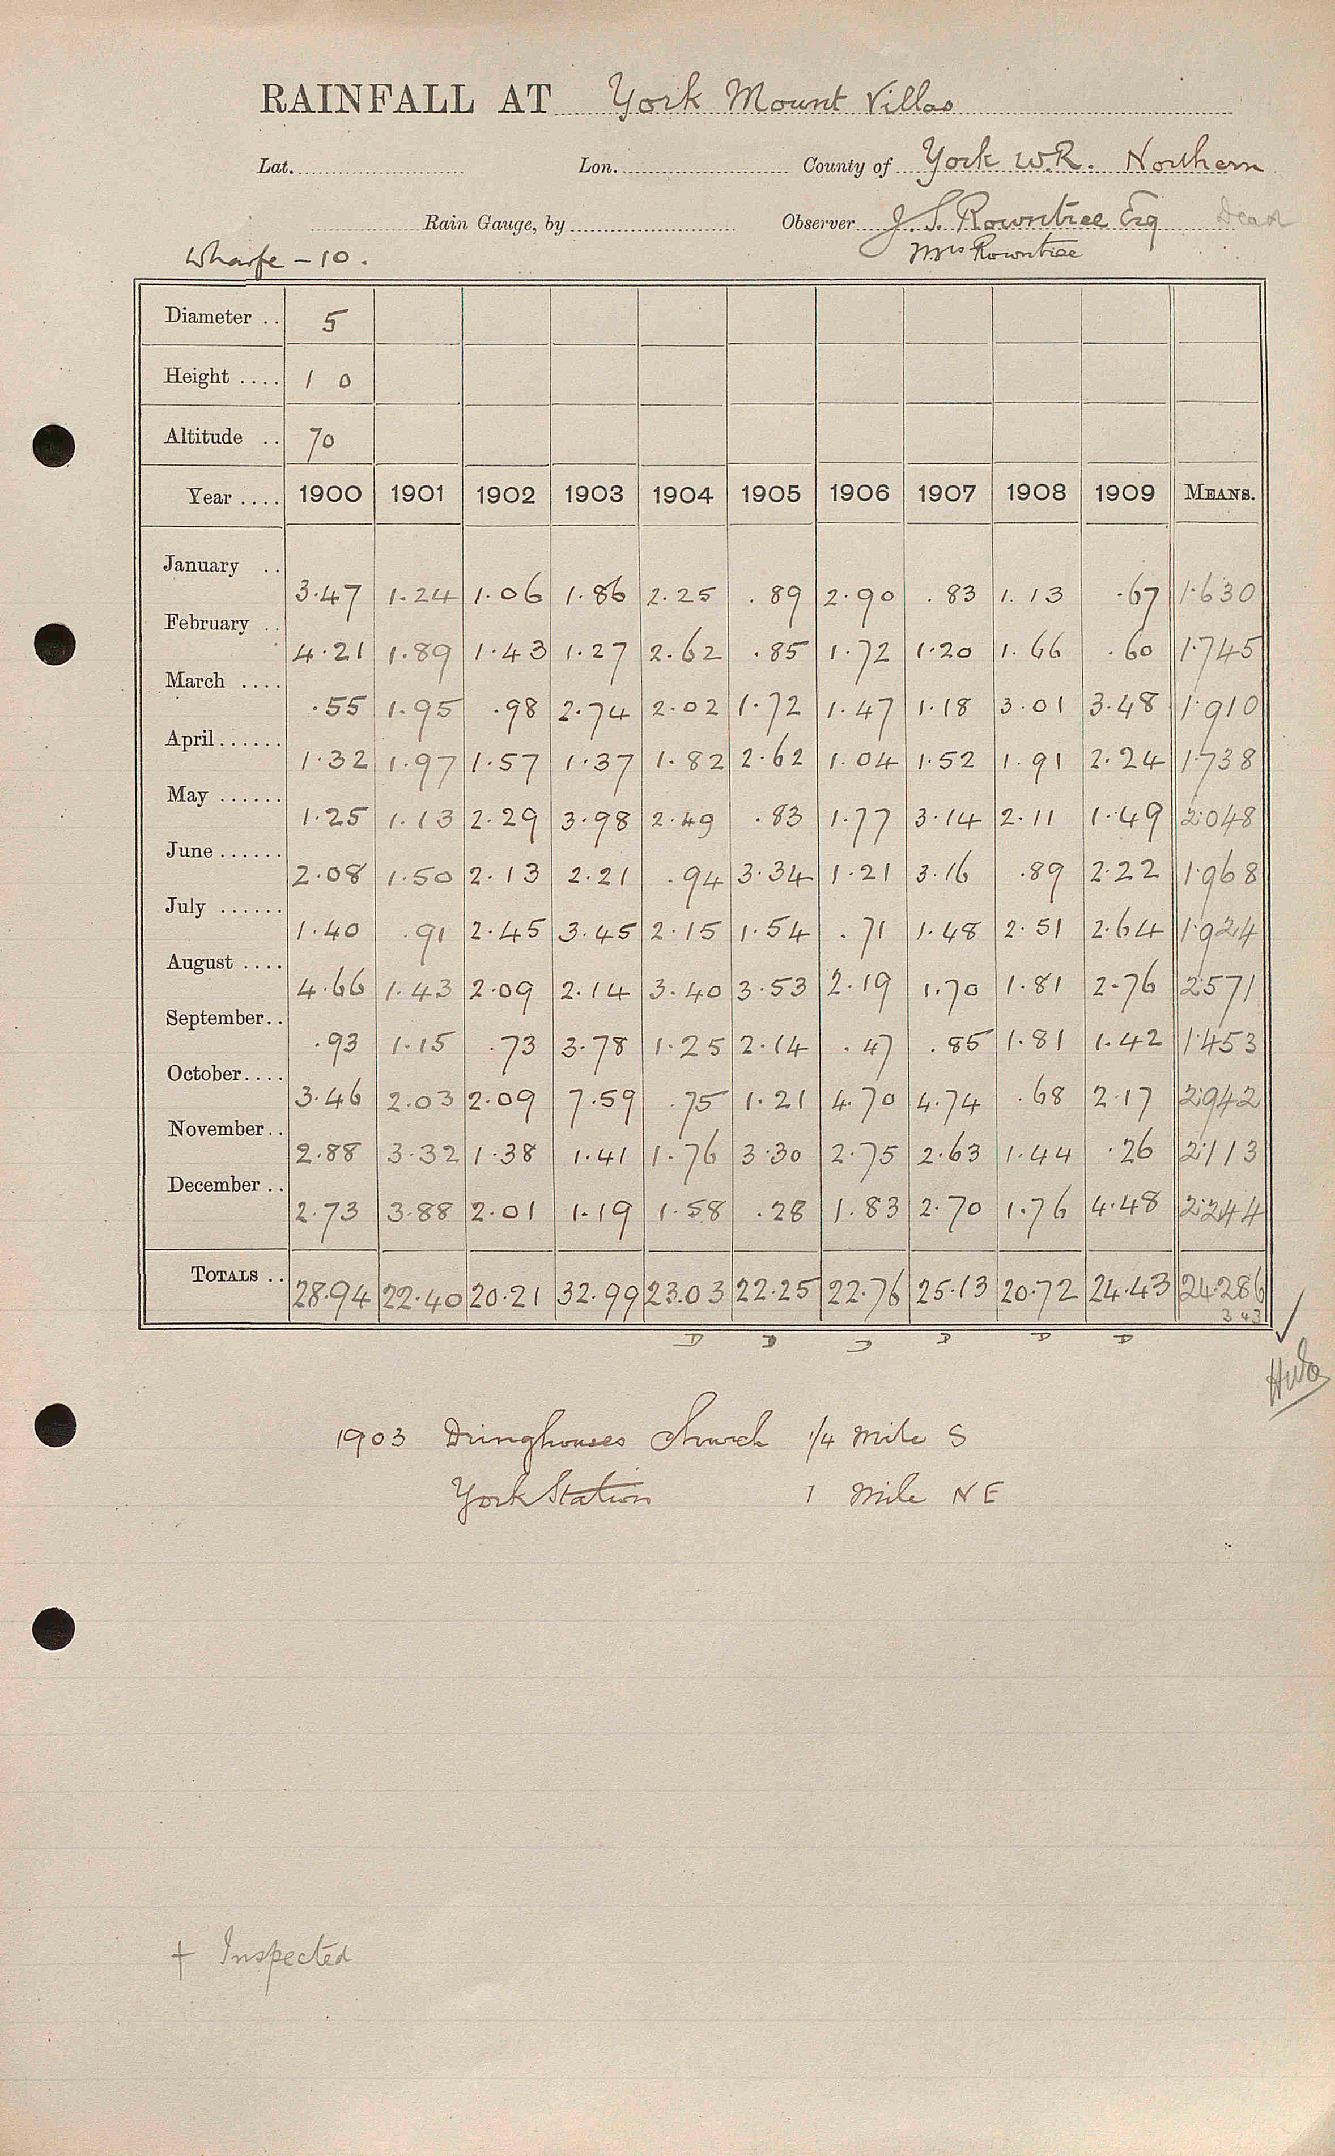 RAINFALL AT York Mount Villas
Lat. Lon. County of York W.R. Northern
Rain Gauge, by Observer J. S. Rowntree Esq Dead
Wharfe – 10. Mrs Rowntree
Diameter .. 5
Height .... 1 0
Altitude .. 70
Year .... 1900 1901 1902 1903 1904 1905 1906 1907 1908 1909 MEANS.
January .. 3.47 1.24 1.06 1.86 2.25 .89 2.90 .83 1.13 .67 1.630
February .. 4.21 1.89 1.43 1.27 2.62 .85 1.72 1.20 1.66 .60 1.745
March .... .55 1.95 .98 2.74 2.02 1.72 1.47 1.18 3.01 3.48 1.910
April...... 1.32 1.97 1.57 1.37 1.82 2.62 1.04 1.52 1.91 2.24 1.738
May ...... 1.25 1.13 2.29 3.98 2.49 .83 1.77 3.14 2.11 1.49 2.048
June...... 2.08 1.50 2.13 2.21 .94 3.34 1.21 3.16 .89 2.22 1.968
July ...... 1.40 .91 2.45 3.45 2.15 1.54 .71 1.48 2.51 2.64 1.924
August .... 4.66 1.43 2.09 2.14 3.40 3.53 2.19 1.70 1.81 2.76 2.571
September.. .93 1.15 .73 3.78 1.25 2.14 .47 .85 1.81 1.42 1.453
October.... 3.46 2.03 2.09 7.59 .75 1.21 4.70 4.74 .68 2.17 2.942
November.. 2.88 3.32 1.38 1.41 1.76 3.30 2.75 2.63 1.44 .26 2.113
December.. 2.73 3.88 2.01 1.19 1.58 .28 1.83 2.70 1.76 4.48 2.244
TOTALS .. 28.94 22.40 20.21 32.99 23.03 22.25 22.76 25.13 20.72 24.43 24.286
343
D D D D D D
1903 Dringhouses Church 1/4 mile S
York Station 1 mile NE
† Inspected